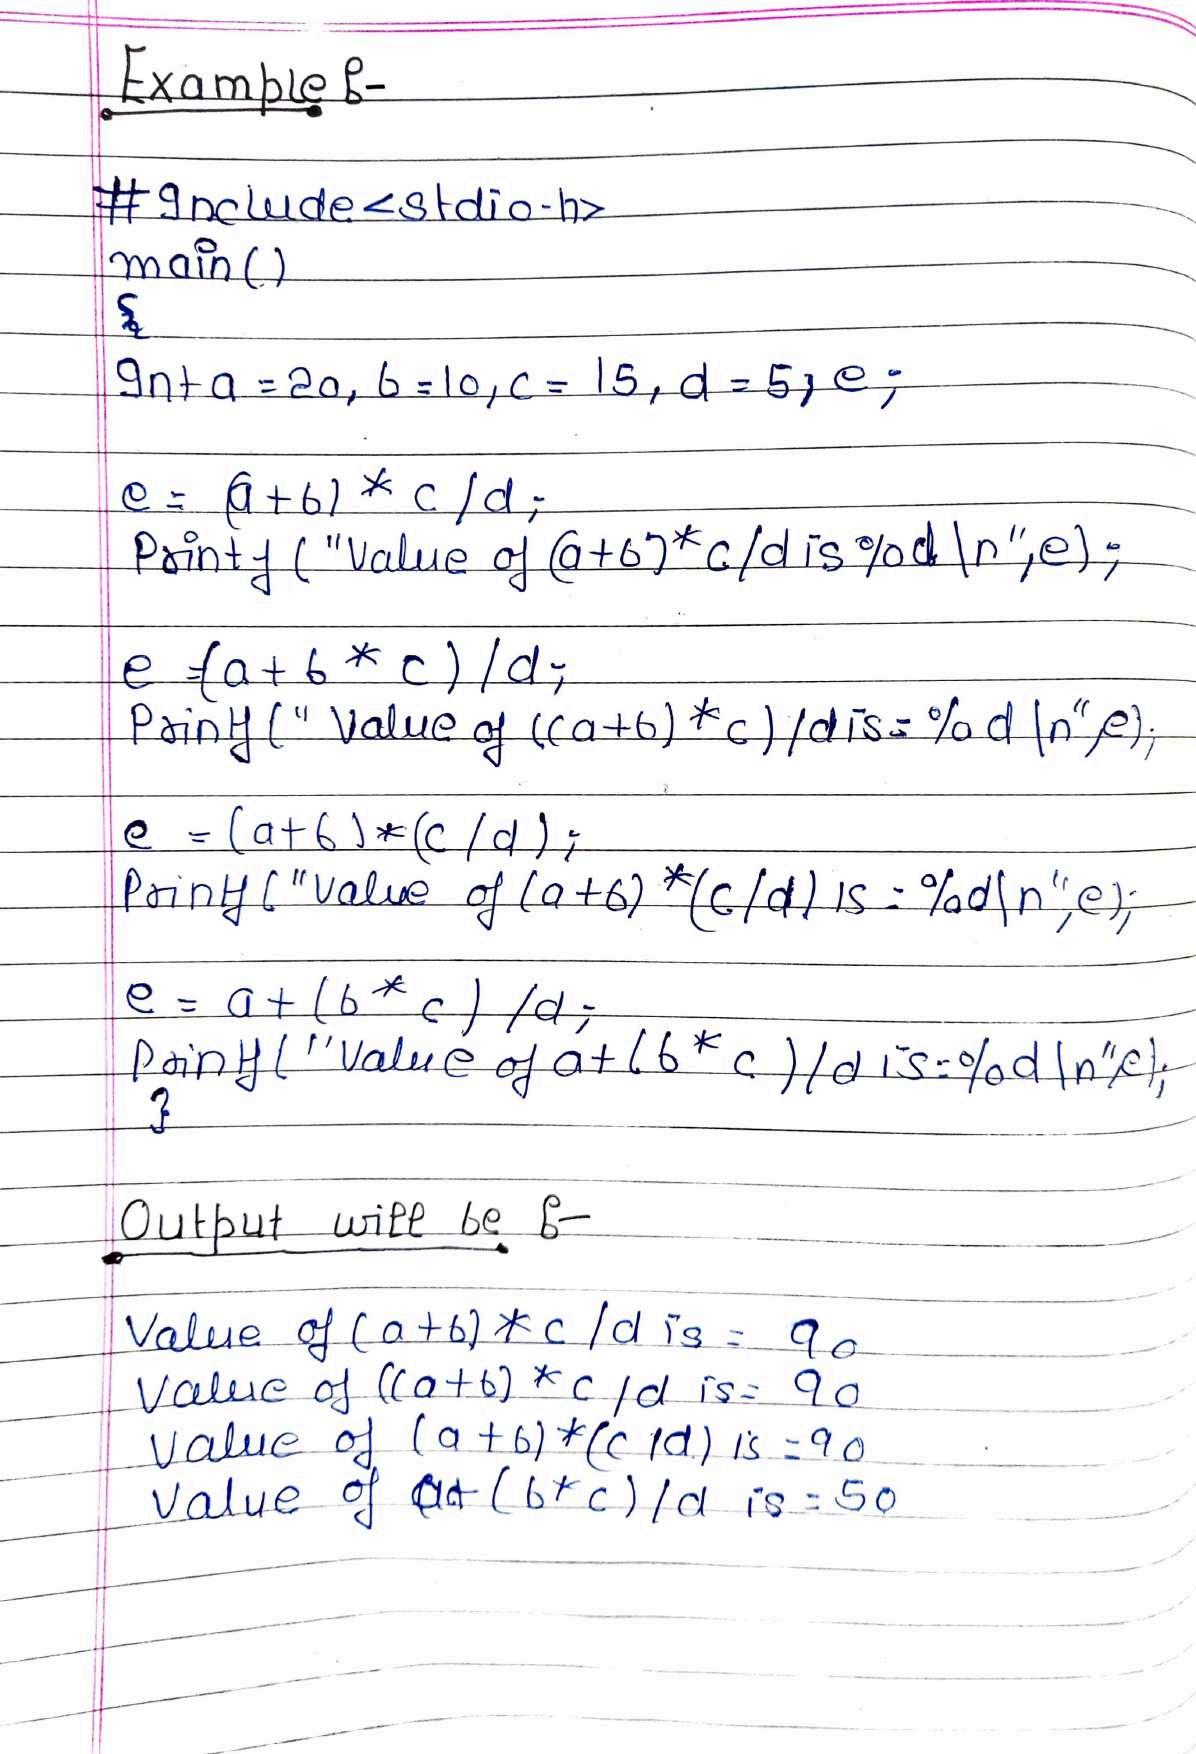 Example :-
#Include<stdio.h>
main()
{
Int a = 20, b = 10, c = 15, d = 5, e;
e = (a+b) * c /d;
Printf ("Value of (a+b)*c/d is %d \n", e);
e =(a + b * c) / d;
Printf (" Value of ((a+b) *c)/d is= %d \n", e);
e = (a+b)*(c/d);
Printf ("Value of (a+b) *(c/d) is = %d\n", e);
e = a + (b * c) /d;
Printf ("Value of a+(b * c )/d is=%d \n", e);
}
Output will be :-
Value of (a+b) * c /d is = 90
Value of ((a+b) * c /d is= 90
Value of (a +b)*(c /d) is =90
Value of a+ (b*c)/d is = 50